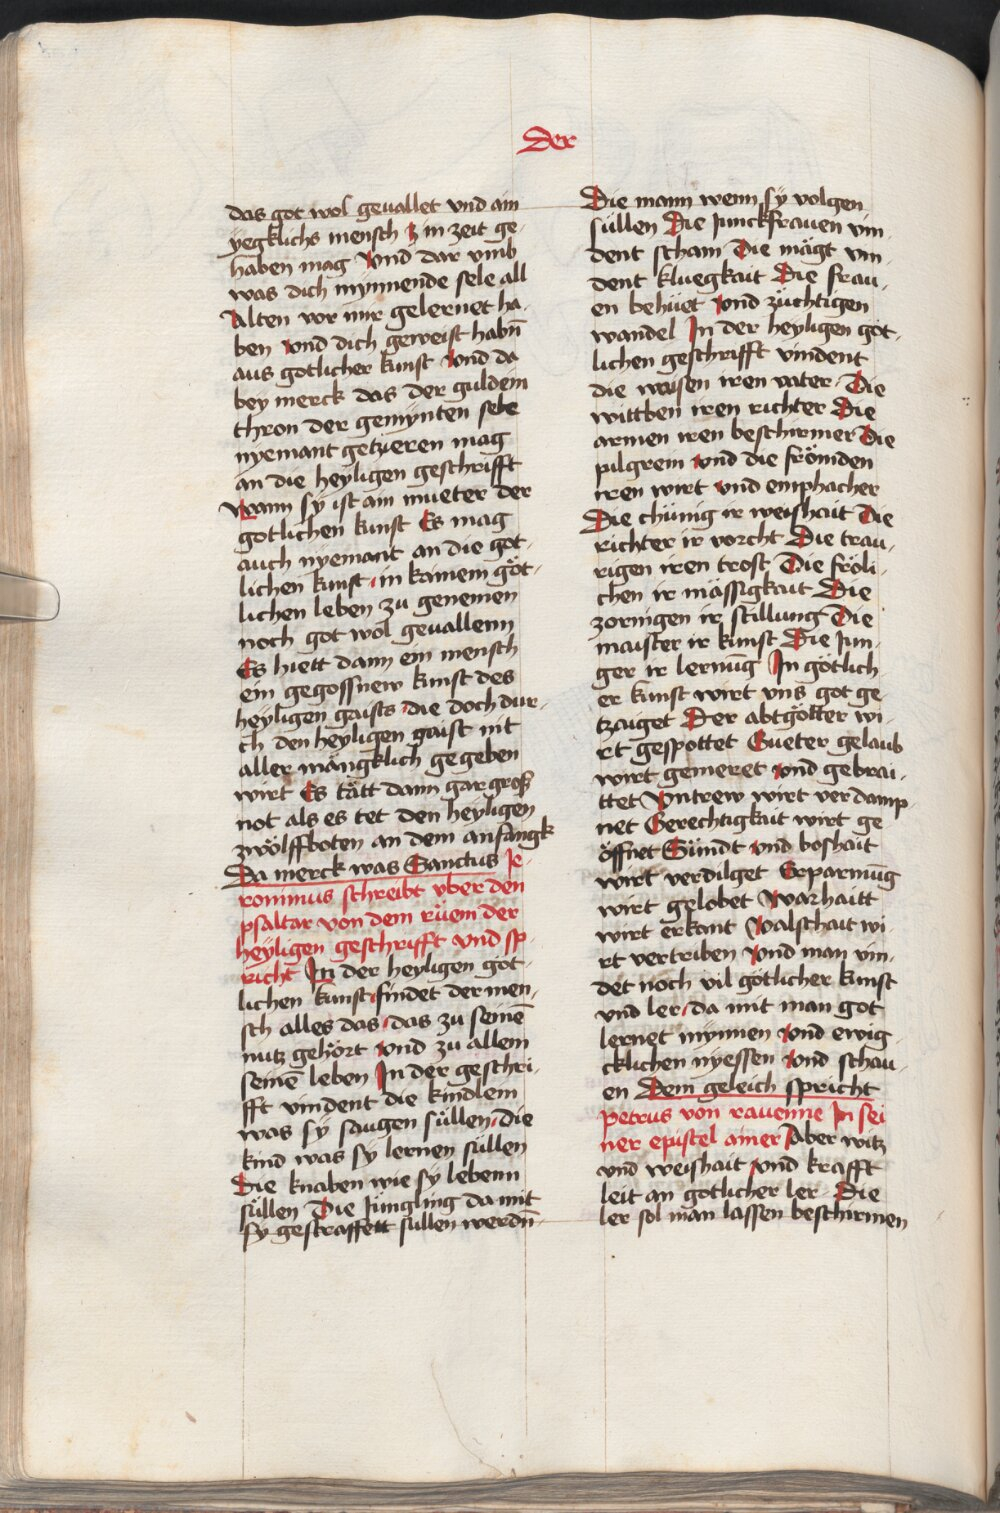 Der
das got wol geuallet vnd ain
yegklichs mensch in zeit ge-
haben mag Vnd dar vmb
was dich mynnende sele all
Alten vor mir gelernet ha-
ben vnd dich geweist habn̄
aus gotlicher kunst Vnd da
bey merck das der guldein
thron der gemynten sele
nyemant getzieren mag
an die heyligen geschrifft
Wann sy ist ain mueter der
gotlichen kunst Es mag
auch nyemant an die got-
lichen kunst in kainem göt-
lichen leben zu genemen
noch got wol geuallenn
Es hiett dann ein mensch
ein gegossnew kunst des
heyligen gaists die doch dur-
ch den heyligen gaist nit
aller mängklich gegeben
wirt Es tätt dann gar groß
not als es tet den heyligen
zwölffboten an dem anfangk
Da merck was Sanctus Je-
ronimus schreibt vber den
psaltar von dem rüem der
heyligen geschrifft vnd sp-
richt In der heyligen got-
lichen kunst findet der men-
sch alles das das zu seinē
nutz gehört vnd zu allem
seinē leben In der geschri-
fft vindent die kindlein
was sy saugen süllen die
kind was sy lernen süllen
Die knaben wie sy lebenn
süllen Die Jüngling da mit
sy gestraffett sullen werdn̄
Die mann wenn sy volgen
süllen Die Junckfrauen vin-
dent scham Die mägt vin-
dent kluegkait Die frau-
en behüet vnd züchtigen
wandel In der heyligen göt-
lichen geschrifft vindent
die waisen iren vater Die
wittben iren richter Die
armen iren beschirmer Die
pilgrem vnd die frömden
iren wirt vnd emphacher
Die chünig ir weishait Die
richter ir vorcht Die trau-
rigen iren trost Die fröli-
chen ir mässigkait Die
zornigen ir stillung Die
maister ir kunst Die Jun-
ger ir lernūg In götlich-
er kunst wirt vns got ge-
tzaiget Der abtgötter wi-
rt gespottet Gueter gelaub
wirt gemeret vnd gebrai-
ttet Vntrew wirt verdamp-
net Gerechtigkait wirt ge
öffnet Sündt vnd boshait
wirt verdilget Erparmūg
wirt gelobet Warhaitt
wirt erkant Valschait wi-
rt vertriben Vnd man vin-
det noch vil götlicher kunst
vnd ler da mit man got
lernet mynnen vnd ewig-
cklichen nyessen vnd schau-
en Dem geleich spricht
petrus von rauenne In sei
ner epistel ainer Aber witz
vnd weishait vnd krafft
leit an gotlicher ler Die
ler sol man lassen beschirmen